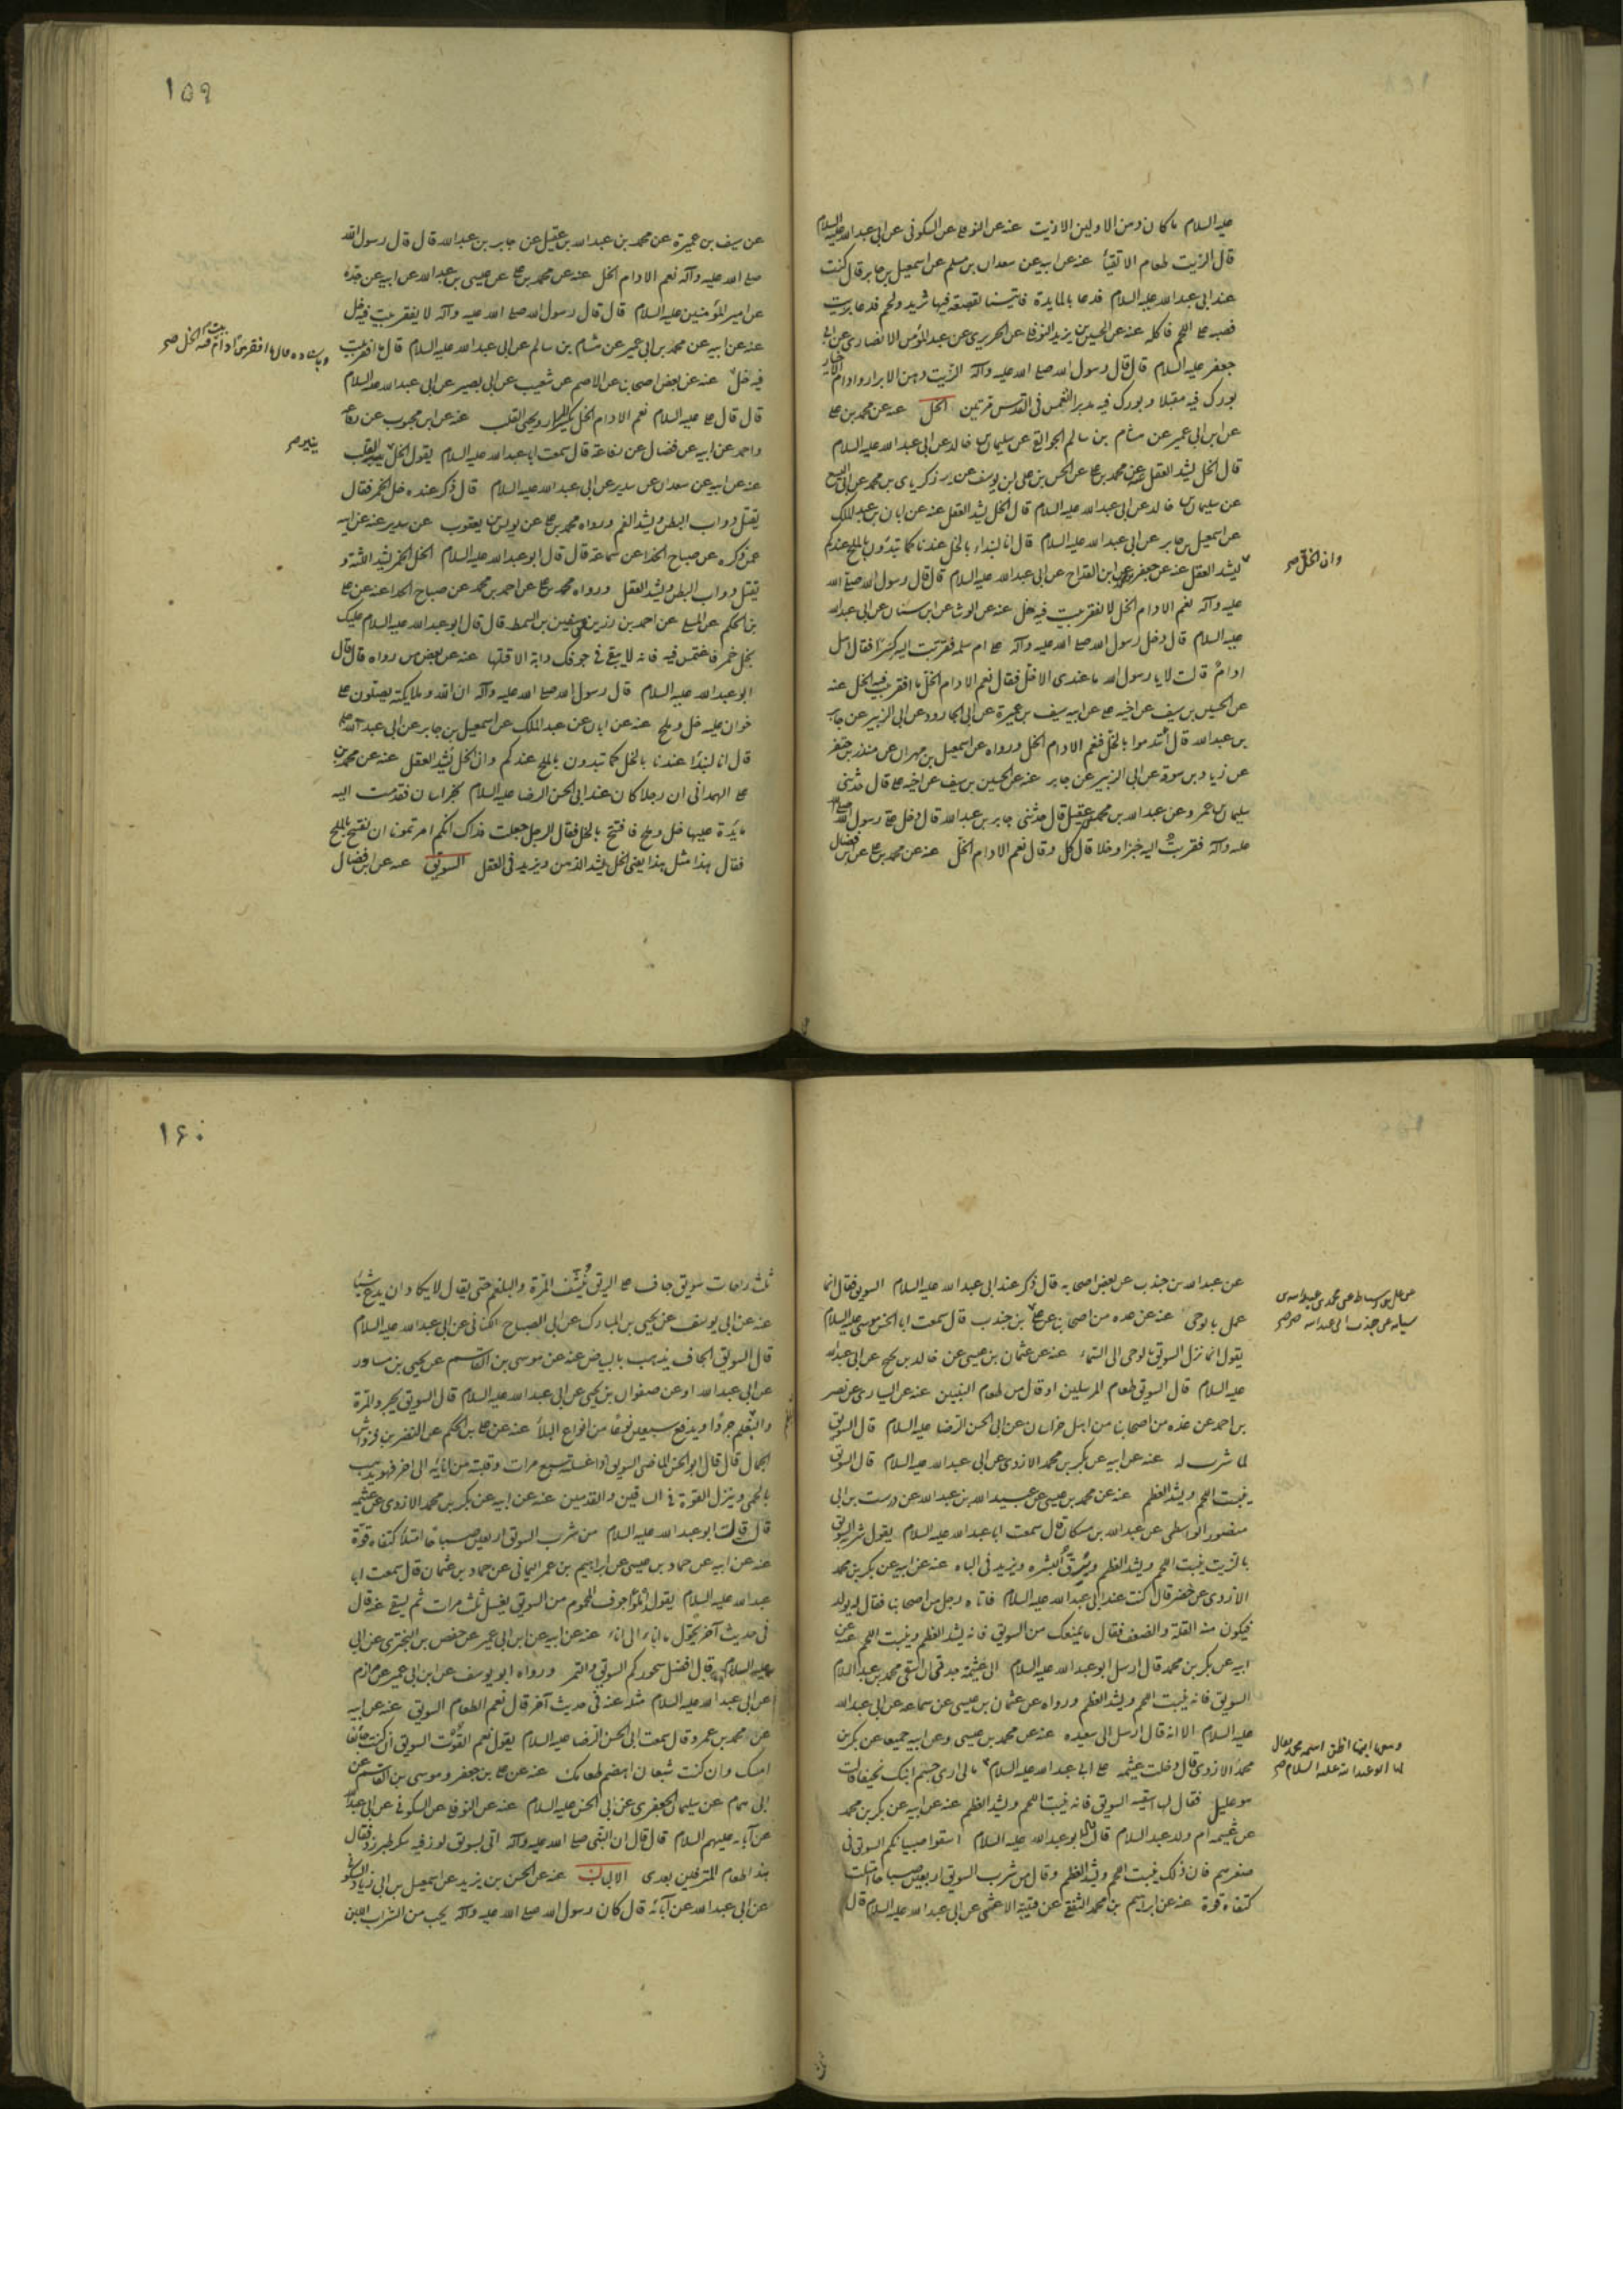 عليه السلام ما كان دهن الاولين الا زيت عنه عن النوفلى عن السكونى عن ابى عبدالله عليه السلام
قال الزيت طعام الاتقياء عنه عن ابيه عن سعدان بن مسلم عن اسمعيل بن جابر قال كنت
عند ابى عبدالله عليه السلام فدعا بالمايدة فاتينا بقصعة فيها ثريد ولحم فدعا بزيت
فصبه على اللحم فاكله عنه عن الحسين بن يزيد النوفلى عن الجريرى عن عبد المؤمن الانصارى عن ابى
جعفر عليه السلام قال قال رسول الله صلى الله عليه وآله الزيت دهن الابرار وادام الاخيار
بورك فيه مقبلا وبورك فيه مدبرا انغمس فى القدس مرتين الخل عنه عن محمد بن على
عن ابن ابى عمير عن هشام بن سالم الجواليقى عن سليمان بن خالد عن ابى عبد الله عليه السلام
قال الخل يشد العقل عنه عن محمد بن على عن الحسن بن على بن يوسف عن زكريا بن محمد عن ابى اليسع
عن سليمان بن خالد عن ابى عبد الله عليه السلام قال الخل يشد العقل عنه عن ابان بن عبد الملك
عن اسمعيل بن جابر عن ابى عبد الله عليه السلام قال انا لنبداء بالخل عندنا كما تبدؤن بالملح عندكم
وان الخل صح
ليشد العقل عنه عن جعفر بن محمد عن ابن القداح عن ابى عبد الله عليه السلام قال قال رسول الله صلى الله
عليه وآله نعم الادام الخل لا يفقر بيت فيه خل عنه عن الوشا عن ابن سنان عن ابى عبد الله
عليه السلام قال دخل رسول الله صلى الله عليه وآله على ام سلمه فقربت اليه كسرًا فقال هل
ادامٌ قالت لا يا رسول الله ما عندى الا خل فقال نعم الادام الخل ما افقر بيت فيه الخل عنه
عن الحسين بن سيف عن اخيه على عن ابيه سيف بن عميرة عن ابى الجارود عن ابى الزبير عن جابر
بن عبد الله قال ائتدموا بالخل فنعم الادام الخل ورواه عن اسمعيل بن مهران عن منذر بن جعفر
عن زياد بن سوقة عن ابى الزبير عن جابر عنه عن الحسين بن سيف عن اخيه على قال حدثنى
سليمان بن عمرو عن عبد الله بن محمد بن عقيل قال حدثنى جابر بن عبد الله قال دخل على رسول الله صلى الله
عليه وآله فقربت اليه خبزا وخلا قال كل وقال نعم الادام الخل عنه عن محمد بن على عن ابن فضال
١٥٩
عن سيف بن عميرة عن محمد بن عبد الله بن عقيل عن جابر بن عبد الله قال قال رسول الله
صلى الله عليه وآله نعم الادام الخل عنه عن محمد بن على عن عيسى بن عبد الله عن ابيه عن جده
عن امير المؤمنين عليه السلام قال قال رسول الله صلى الله عليه وآله لا يفقر بيت فيه خل
عنه عن ابيه عن محمد بن ابى عمير عن هشام بن سالم عن ابى عبد الله عليه السلام قال ما افقر بيت
فيه خل عنه عن بعض اصحابنا عن الاصم عن شعيب عن ابى بصير عن ابى عبد الله عليه السلام
قال قال على عليه السلام نعم الادام الخل يكسر المرار ويحيى القلب عنه عن ابن محبوب عن رفاعه
واحمد عن ابيه عن فضال عن رفاعة قال سمعت ابا عبد الله عليه السلام يقول الخل القلب
ينير صح
عنه عن ابيه عن سعدان عن سدير عن ابى عبد الله عليه السلام قال ذكر عنده خل الخمر فقال
يقتل دواب البطن ويشد الفم ورواه محمد بن على عن يونس بن يعقوب عن سدير عنه عن ابيه
عمن ذكره عن صباح الحذا عن سماعة قال قال ابو عبد الله عليه السلام الخل الخمر يشد اللثة و
يقتل دواب البطن ويشد العقل ورواه محمد بن على عن احمد بن محمد عن صباح الحذا عنه عن على
بن الحكم عن المسلى عن احمد بن رزين عن سفين بن السمط قال قال ابو عبد الله عليه السلام عليك
بخل خمر فاغتمس فيه فانه لا يبقى فى جوفك دابة الا قتلها عنه عن بعض من رواه قال قال
ابو عبد الله عليه السلام قال رسول الله صلى الله عليه وآله ان الله وملايكته يصلون على
خوان عليه خل وملح عنه عن ابان عن عبد الملك عن اسمعيل بن جابر عن ابى عبد الله عليه السلام
قال انا لنبدأ عندنا بالخل كما تبدون بالملح عندكم وان الخل يشد العقل عنه عن محمد بن
على الهمدانى ان رجلا كان عند ابى الحسن الرضا عليه السلام بخراسان فقدمت اليه
مايدة عليها خل وملح فافتتح بالخل فقال الرجل جعلت فداك انكم امرتمونا ان نفتتح بالملح
فقال هذا مثل هذا يعنى الخل يشد الذهن ويزيد فى العقل السويق عنه عن ابن فضال
عن عبد الله بن جندب عن بعض اصحابه قال ذكر عند ابى عبد الله عليه السلام السويق فقال انما
عمل بالوحى عنه عن عده من اصحابنا عن على بن جندب قال سمعت ابا الحسن موسى عليه السلام
يقول انما نزل السويق بالوحى الى السماء عنه عن عثمان بن عيسى عن خالد بن نجيح عن ابى عبد الله
عليه السلام قال السويق طعام المرسلين او قال من طعام النبيين عنه عن السيارى عن نصر
بن احمد عن عده من اصحابنا من اهل خراسان عن ابى الحسن الرضا عليه السلام قال السويق
لما شرب له عنه عن ابيه عن بكر بن محمد الازدى عن ابى عبد الله عليه السلام قال السويق
ينبت اللحم ويشد العظم عنه عن محمد بن عيسى عن عبيد الله بن عبد الله عن درست بن ابى
منصور الواسطى عن عبد الله بن مسكان قال سمعت ابا عبد الله عليه السلام يقول شربة السويق
بالزيت ينبت اللحم ويشد العظم ويرق البشره ويزيد فى الباه عنه عن ابيه عن بكر بن محمد
الازدى عن خضر قال كنت عند ابى عبد الله عليه السلام فاتاه رجل من اصحابنا فقال له يولد
فيكون منه القلة والضعف فقال ما يمنعك من السويق فانه يشد العظم وينبت اللحم عنه عن
ابيه عن بكر بن محمد قال ارسل ابو عبد الله عليه السلام الى عثيمة جدتى ان اسقى محمد بن عبد السلام
السويق فانه ينبت اللحم ويشد العظم ورواه عن عثمان بن عيسى عن سماعه عن ابى عبد الله
عليه السلام الا انه قال ارسل الى سعيده عنه عن محمد بن عيسى وعن ابيه جميعا عن بكر بن
محمد الازدى قال دخلت عثيمه على ابى عبد الله عليه السلام ما لى ارى جسم ابنك نحيفا قالت
ومعها ابنها اظن اسمه محمد فقال
لها ابو عبد الله عليه السلام صح
هو عليل فقال لها اسقيه السويق فانه ينبت اللحم ويشد العظم عنه عن ابيه عن بكر بن محمد
عن عثيمه ام ولد عبد السلام قال ابو عبد الله عليه السلام اسقوا صبيانكم السويق فى
صغرهم فان ذلك ينبت اللحم ويشد العظم وقال من شرب السويق اربعين صباحا امتلت
كتفاه قوة عنه عن ابراهيم بن محمد الثقفى عن قتيبة الاعشى عن ابى عبد الله عليه السلام قال
١۶٠
ثلث راحات سويق جاف على الريق ينشف المرة والبلغم حتى يقال لا يكاد ان يدع شيئا
عنه عن ابى يوسف عن يحيى بن المبارك عن ابى الصباح الكنانى عن ابى عبد الله عليه السلام
قال السويق الجاف يذهب بالبياض عنه عن موسى بن القاسم عن يحيى بن مساور
عن ابى عبد الله او عن صفوان بن يحيى عن ابى عبد الله عليه السلام قال السويق يجرد المرة
والبلغم جردًا ويدفع سبعين نوعًا من انواع البلاء عنه عن على بن الحكم عن النضر بن قرواش
الجمال قال قال ابو الحسن الماضى السويق اذا غسلته سبع مرات وقلبته من انائه الى اخر فهو يذهب
بالحمى وينزل القوة فى الساقين والقدمين عنه عن ابيه عن بكر بن محمد الازدى عن عثيمه
قال قالت ابو عبد الله عليه السلام من شرب السويق اربعين صباحا امتلأ كتفاه قوة
عنه عن ابيه عن حماد بن عيسى عن ابراهيم بن عمر اليمانى عن حماد بن عثمان قال سمعت ابا
عبد الله عليه السلام يقول املؤا جوف المحموم من السويق يغسل ثلث مرات ثم يسقى عنه قال
فى حديث آخر يحول من اناء الى اناء عنه عن ابيه عن ابن ابى عمير عن حفص بن البخترى عن ابى
عليه السلام قال افضل سحوركم السويق والتمر ورواه ابو يوسف عن ابن ابى عمير عن مرازم
عن ابى عبد الله عليه السلام مثله عنه فى حديث آخر قال نعم الطعام السويق عنه عن ابيه
عن محمد بن عمرو قال سمعت ابى الحسن الرضا عليه السلام يقول نعم القوت السويق ان كنت جائعا
امسك وان كنت شبعان اهضم طعامك عنه عن على بن جعفر وموسى بن القاسم عن
ابى همام عن سليمان الجعفرى عن ابى الحسن عليه السلام عنه عن النوفلى عن السكونى عن ابى عبد الله
عن آبائه عليهم السلام قال قال ان النبى صلى الله عليه وآله اتى بسويق لوز فيه سكر طبرزد فقال
هذا طعام المترفين بعدى الالبان عنه عن الحسن بن يزيد عن اسمعيل بن ابى زياد السكونى
عن ابى عبد الله عن آبائه قال كان رسول الله صلى الله عليه وآله يحب من الشراب اللبن